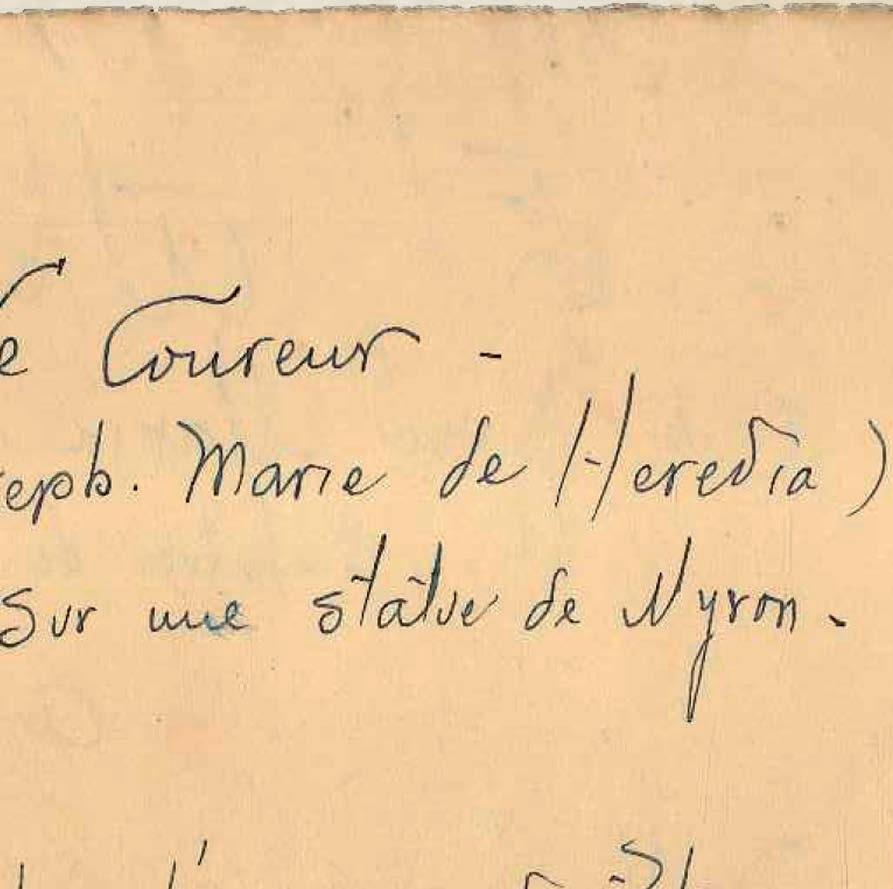 e Coureur -
seph. Marie de Heredia)
Sur une statue de Nyron.